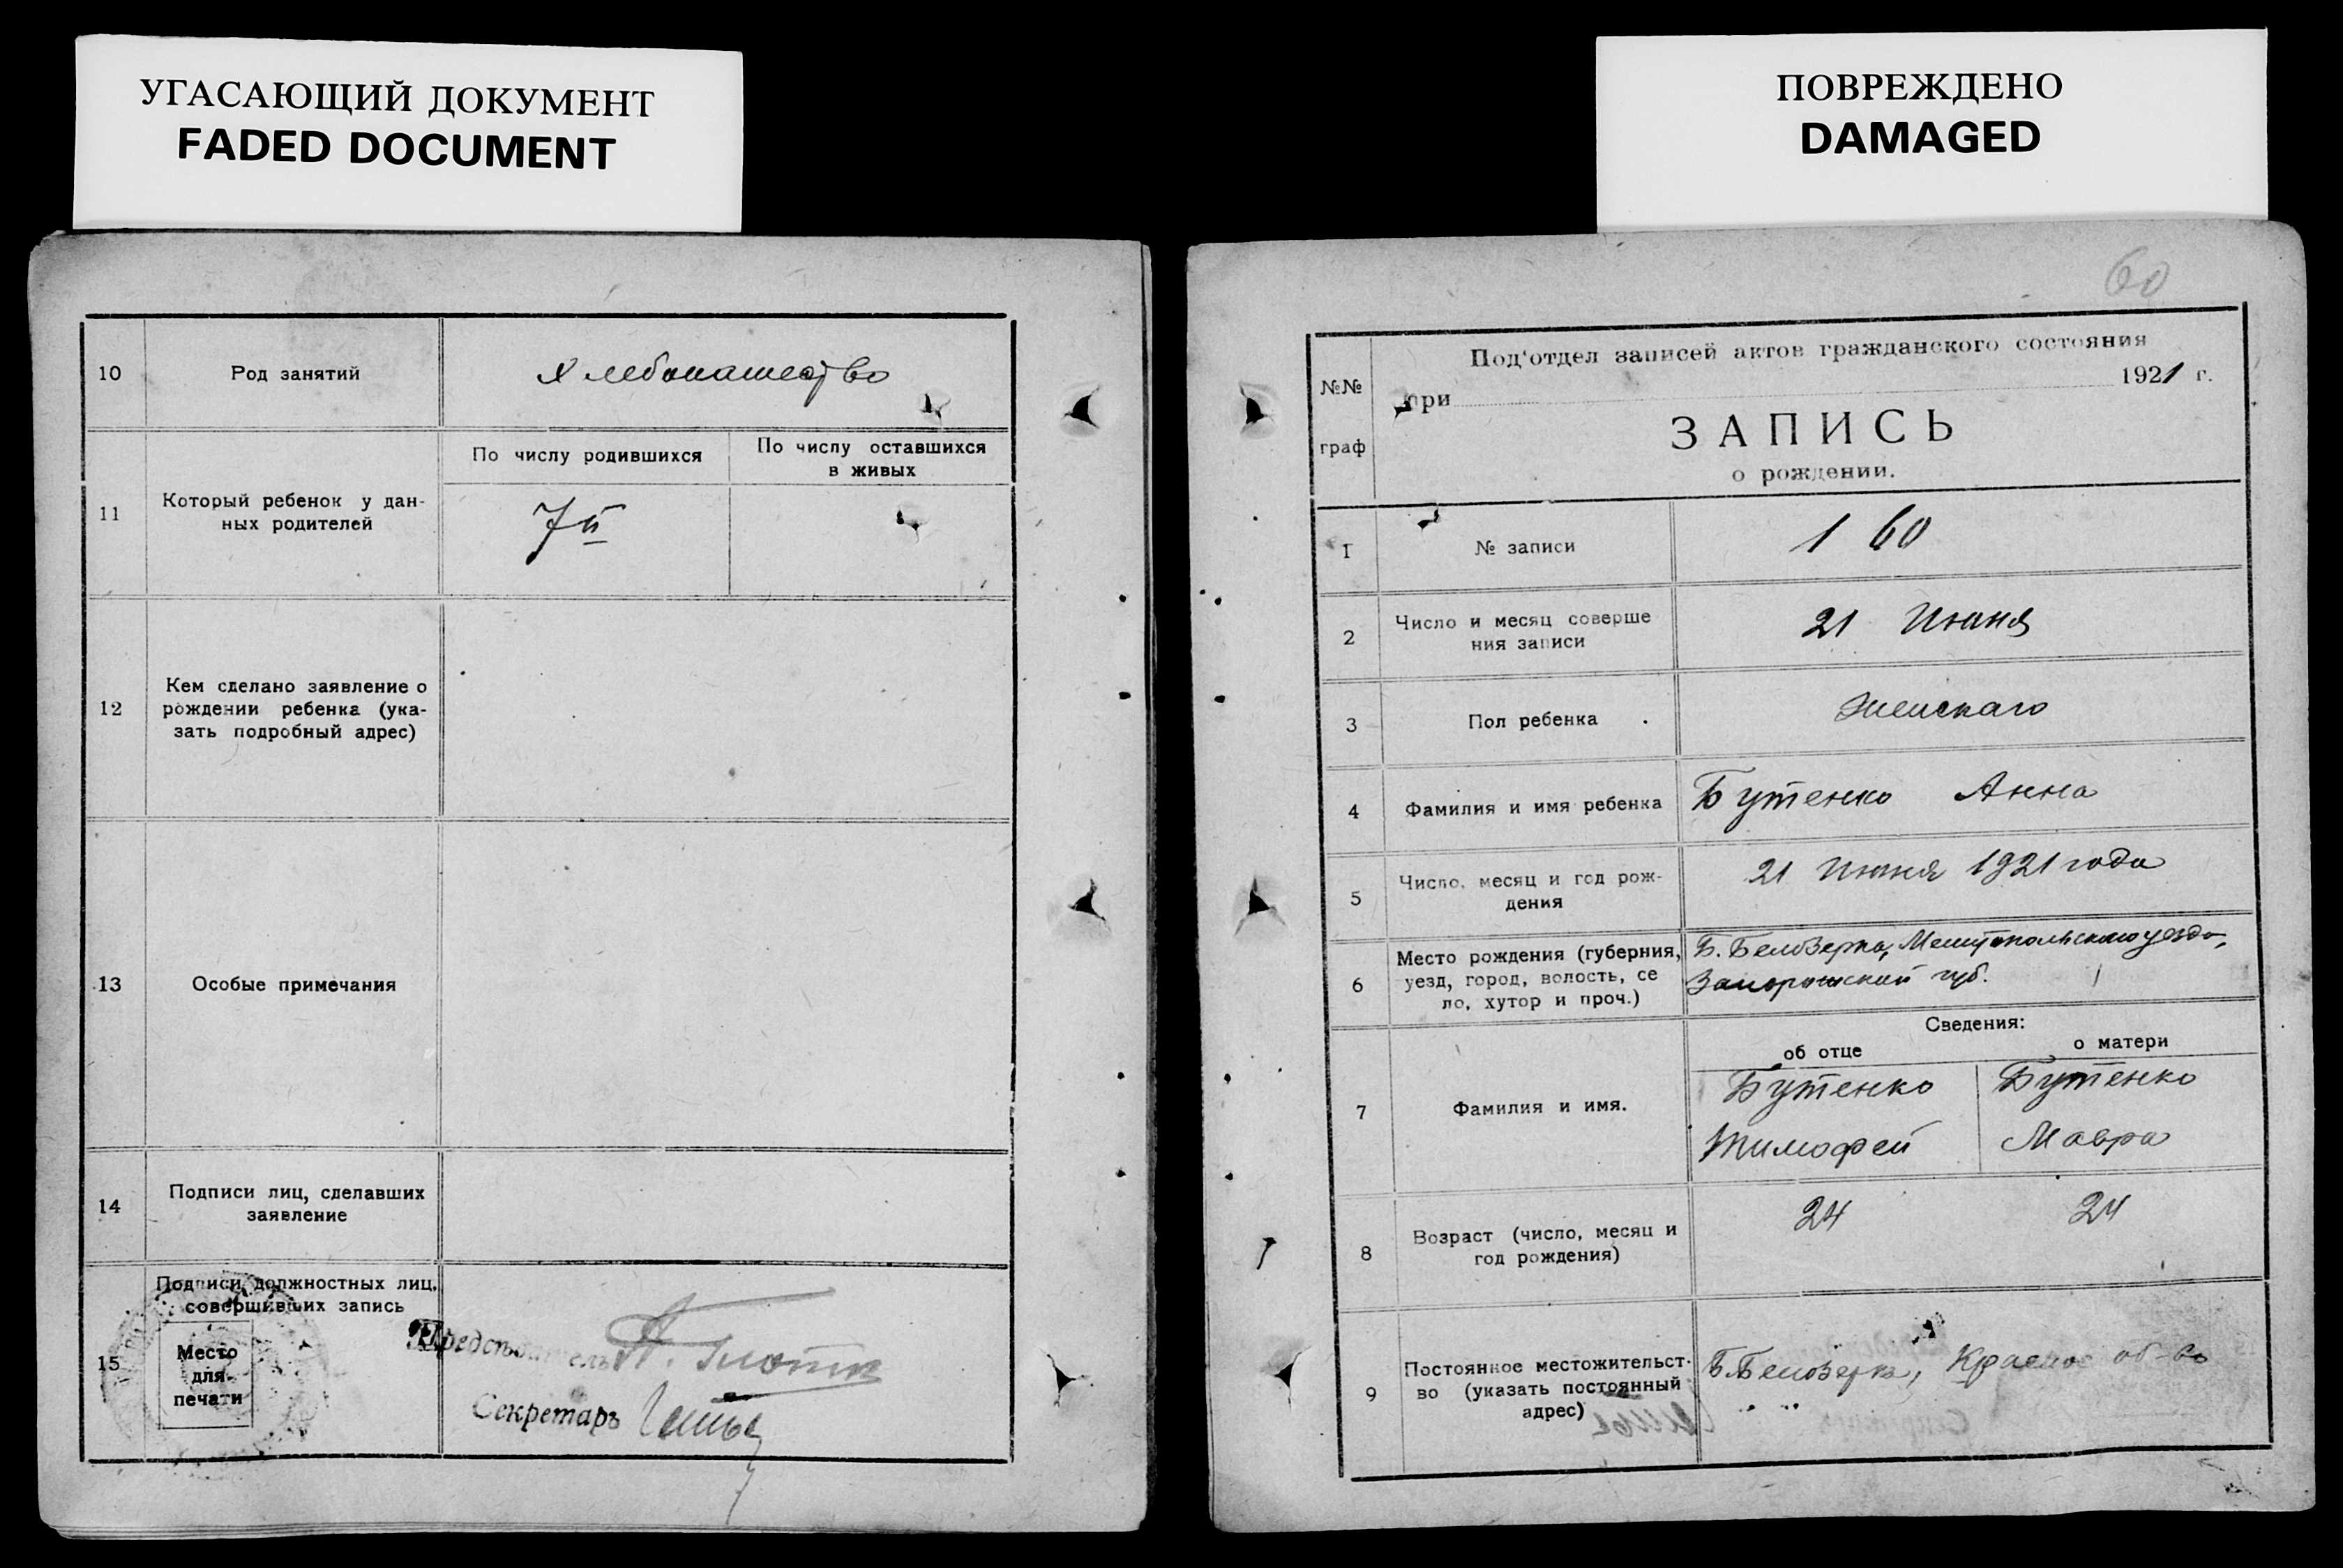 УГАСАЮЩИЙ ДОКУМЕНТ
FADED DOCUMENT
10
Род занятий
Хлебопашество
11
Который ребенок у дан-
ных родителей
По числу родившихся
По числу оставшихся
в живых
7й
12
Кем сделано заявление о
рождении ребенка (ука-
зать подробный адрес)
13
Особые примечания
14
Подписи лиц, сделавших
заявление
15
Подписи должностных лиц,
совершивших запись
Место
для
печати
Председатель
Секретаръ
ПОВРЕЖДЕНО
DAMAGED
60
№№
граф
Под'отдел записей актов гражданского состояния
при 1921 г.
ЗАПИСЬ
о рождении.
1
№ записи
160
2
Число и месяц соверше
ния записи
21 Июня
3
Пол ребенка
Женскаго
4
Фамилия и имя ребенка
Бутенко Анна
5
Число, месяц и год рож-
дения
21 Июня 1921 года
6
Место рождения (губерния,
уезд, город, волость, се
ло, хутор и проч.)
Б. Белозерка, Мелитопольского уезда,
Запорожской губ.
Сведения:
об отце
о матери
7
Фамилия и имя.
Бутенко
Тимофей
Бутенко
Мавра
8
Возраст (число, месяц и
год рождения)
24
24
9
Постоянное местожительст-
во (указать постоянный
адрес)
Б. Белозерка, об-во